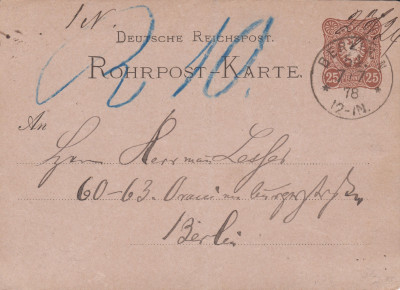 1 N.
DEUTSCHE REICHSPOST.
ROHRPOST-KARTE.
R 10.
25 25
BERLIN
78
12-1N.
An
Herrn Herrman Lesser
60-63. Oranienburgerstraßen
Berlin